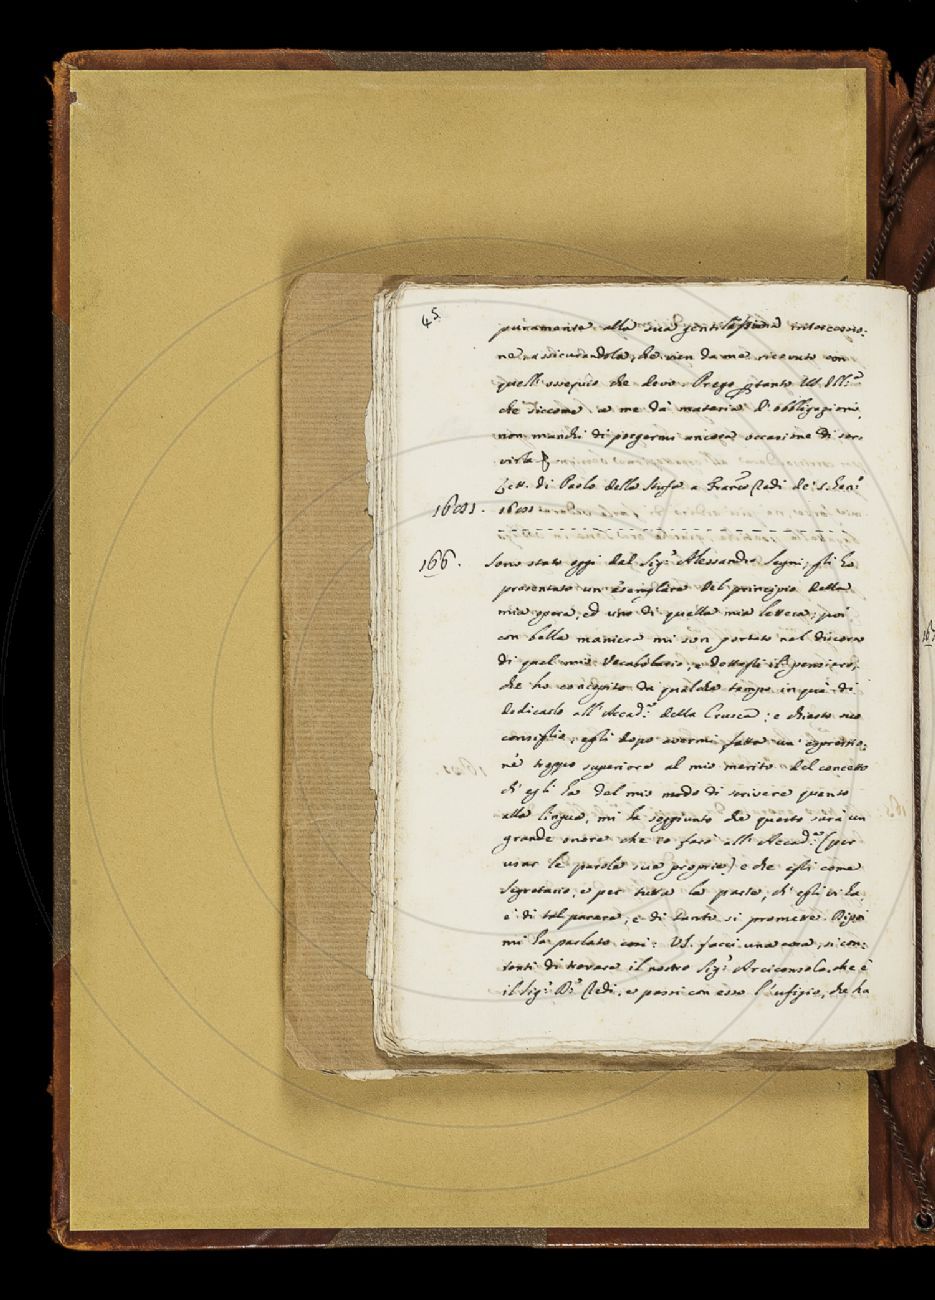 45
puramente alla sua gentilissima intercessio:
ne, assicurandola, che vien da me ricevuto con
quell'ossequio che devo. Prego tanto VS. Ill.ma
che siccome a me dà materia d'obbligazioni,
non manchi di porgermi ancora occasione di ser:
virla
Lett. di Paolo della Stufa a Franc.o Redi de'
1681. 1681
166. Sono stato oggi dal Sig.r Alessandro Segni; gli ho
presentato un esemplare del principio della
mia opera, ed uno di quella mia lettera; poi
con bella maniera mi son portato nel discorso
di quel mio Vocabolario, e dettogli il pensiero,
che ho concepito da qualche tempo in quà di
dedicarlo all'Accad.a della Crusca; e chiesto suo
consiglio; egli dopo avermi fatto un'espressio:
ne troppo superiore al mio merito del concetto
ch'egli ha del mio modo di scrivere quanto
alla lingua, mi ha soggiunto che questo sarà un
grande onore che io farò all'Accad.a (per
usar le parole sue proprie) e che egli come
Segretario, e per tutta la parte, ch'egli vi ha,
è di tal parere, e di tanto si promette. Dipoi
mi ha parlato così: VS. facci una cosa, si con:
tenti di trovare il nostro Sig.r Arciconsolo, che è
il Sig.r Redi, e passi con esso l'ufizio, che ha